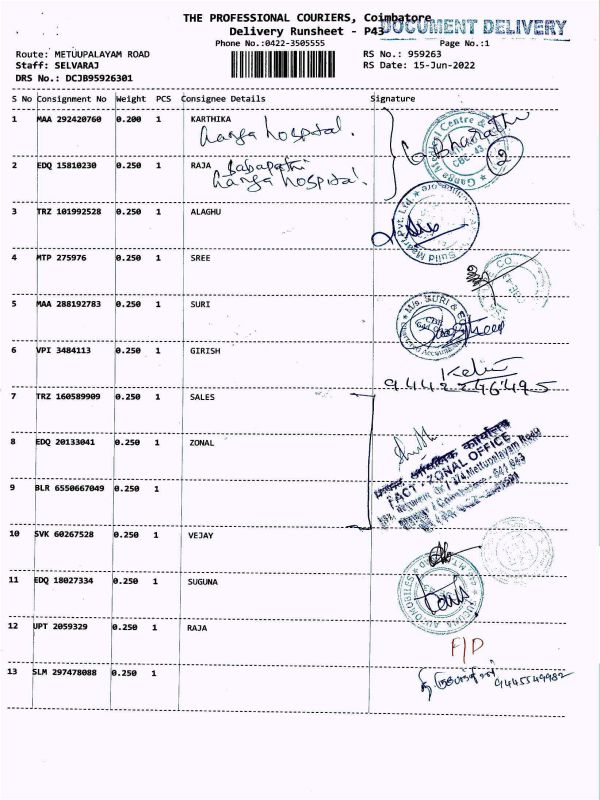 THE PROFESSIONAL COURIERS, Coimbatore
DOCUMENT DELIVERY
Delivery Runsheet - P43
Phone No.:0422-3505555 Page No.:1
Route: METUUPALAYAM ROAD RS No.: 959263
Staff: SELVARAJ RS Date: 15-Jun-2022
DRS No.: DCJB95926301
S No Consignment No Weight PCS Consignee Details Signature
1 MAA 292420760 0.200 1 KARTHIKA
Ganga hospital.
G Bharathi
2
2 EDQ 15810230 0.250 1 RAJA Sabapathi
Ganga hospital.
3 TRZ 101992528 0.250 1 ALAGHU
4 MTP 275976 0.250 1 SREE
5 MAA 288192783 0.250 1 SURI
6 VPI 3484113 0.250 1 GIRISH
9442246495
7 TRZ 160589909 0.250 1 SALES
8 EDQ 20133041 0.250 1 ZONAL
FACT - ZONAL OFFICE
9 BLR 6550667049 0.250 1
10 SVK 60267528 0.250 1 VEJAY
11 EDQ 18027334 0.250 1 SUGUNA
12 UPT 2059329 0.250 1 RAJA
F/D
13 SLM 297478088 0.250 1
9445549982